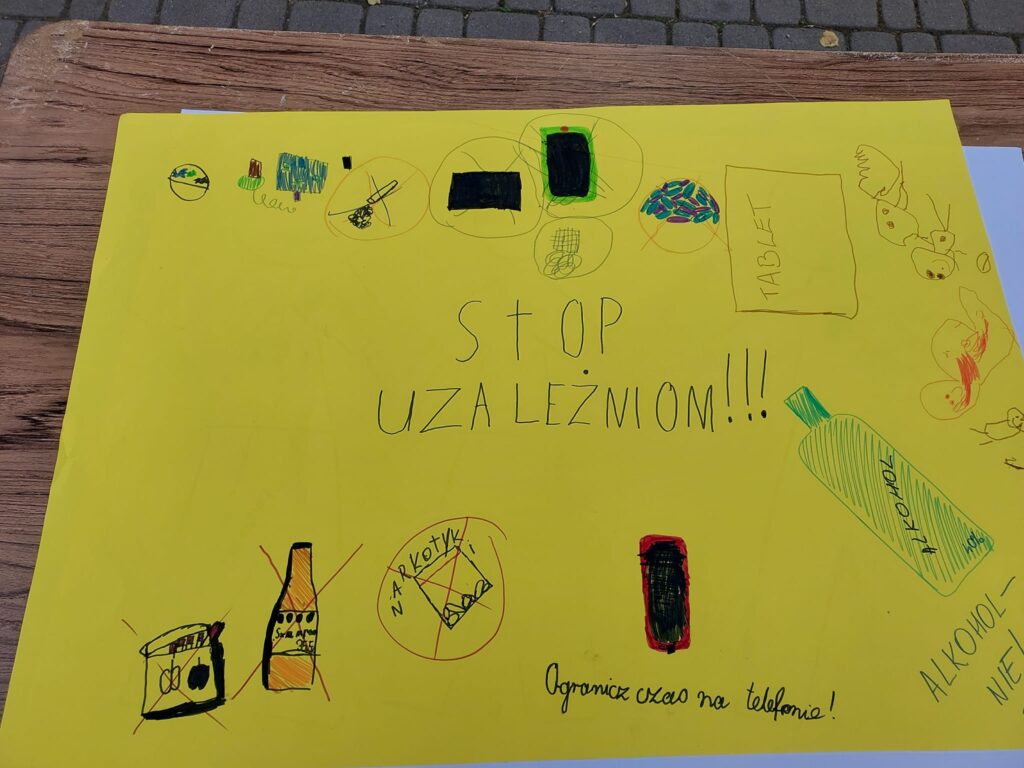 TABLET
STOP
UZALEŻNIOM!!!
ALKOHOL
40%
NARKOTYKI
Ogranicz czas na telefonie!
ALKOHOL-
NIE!